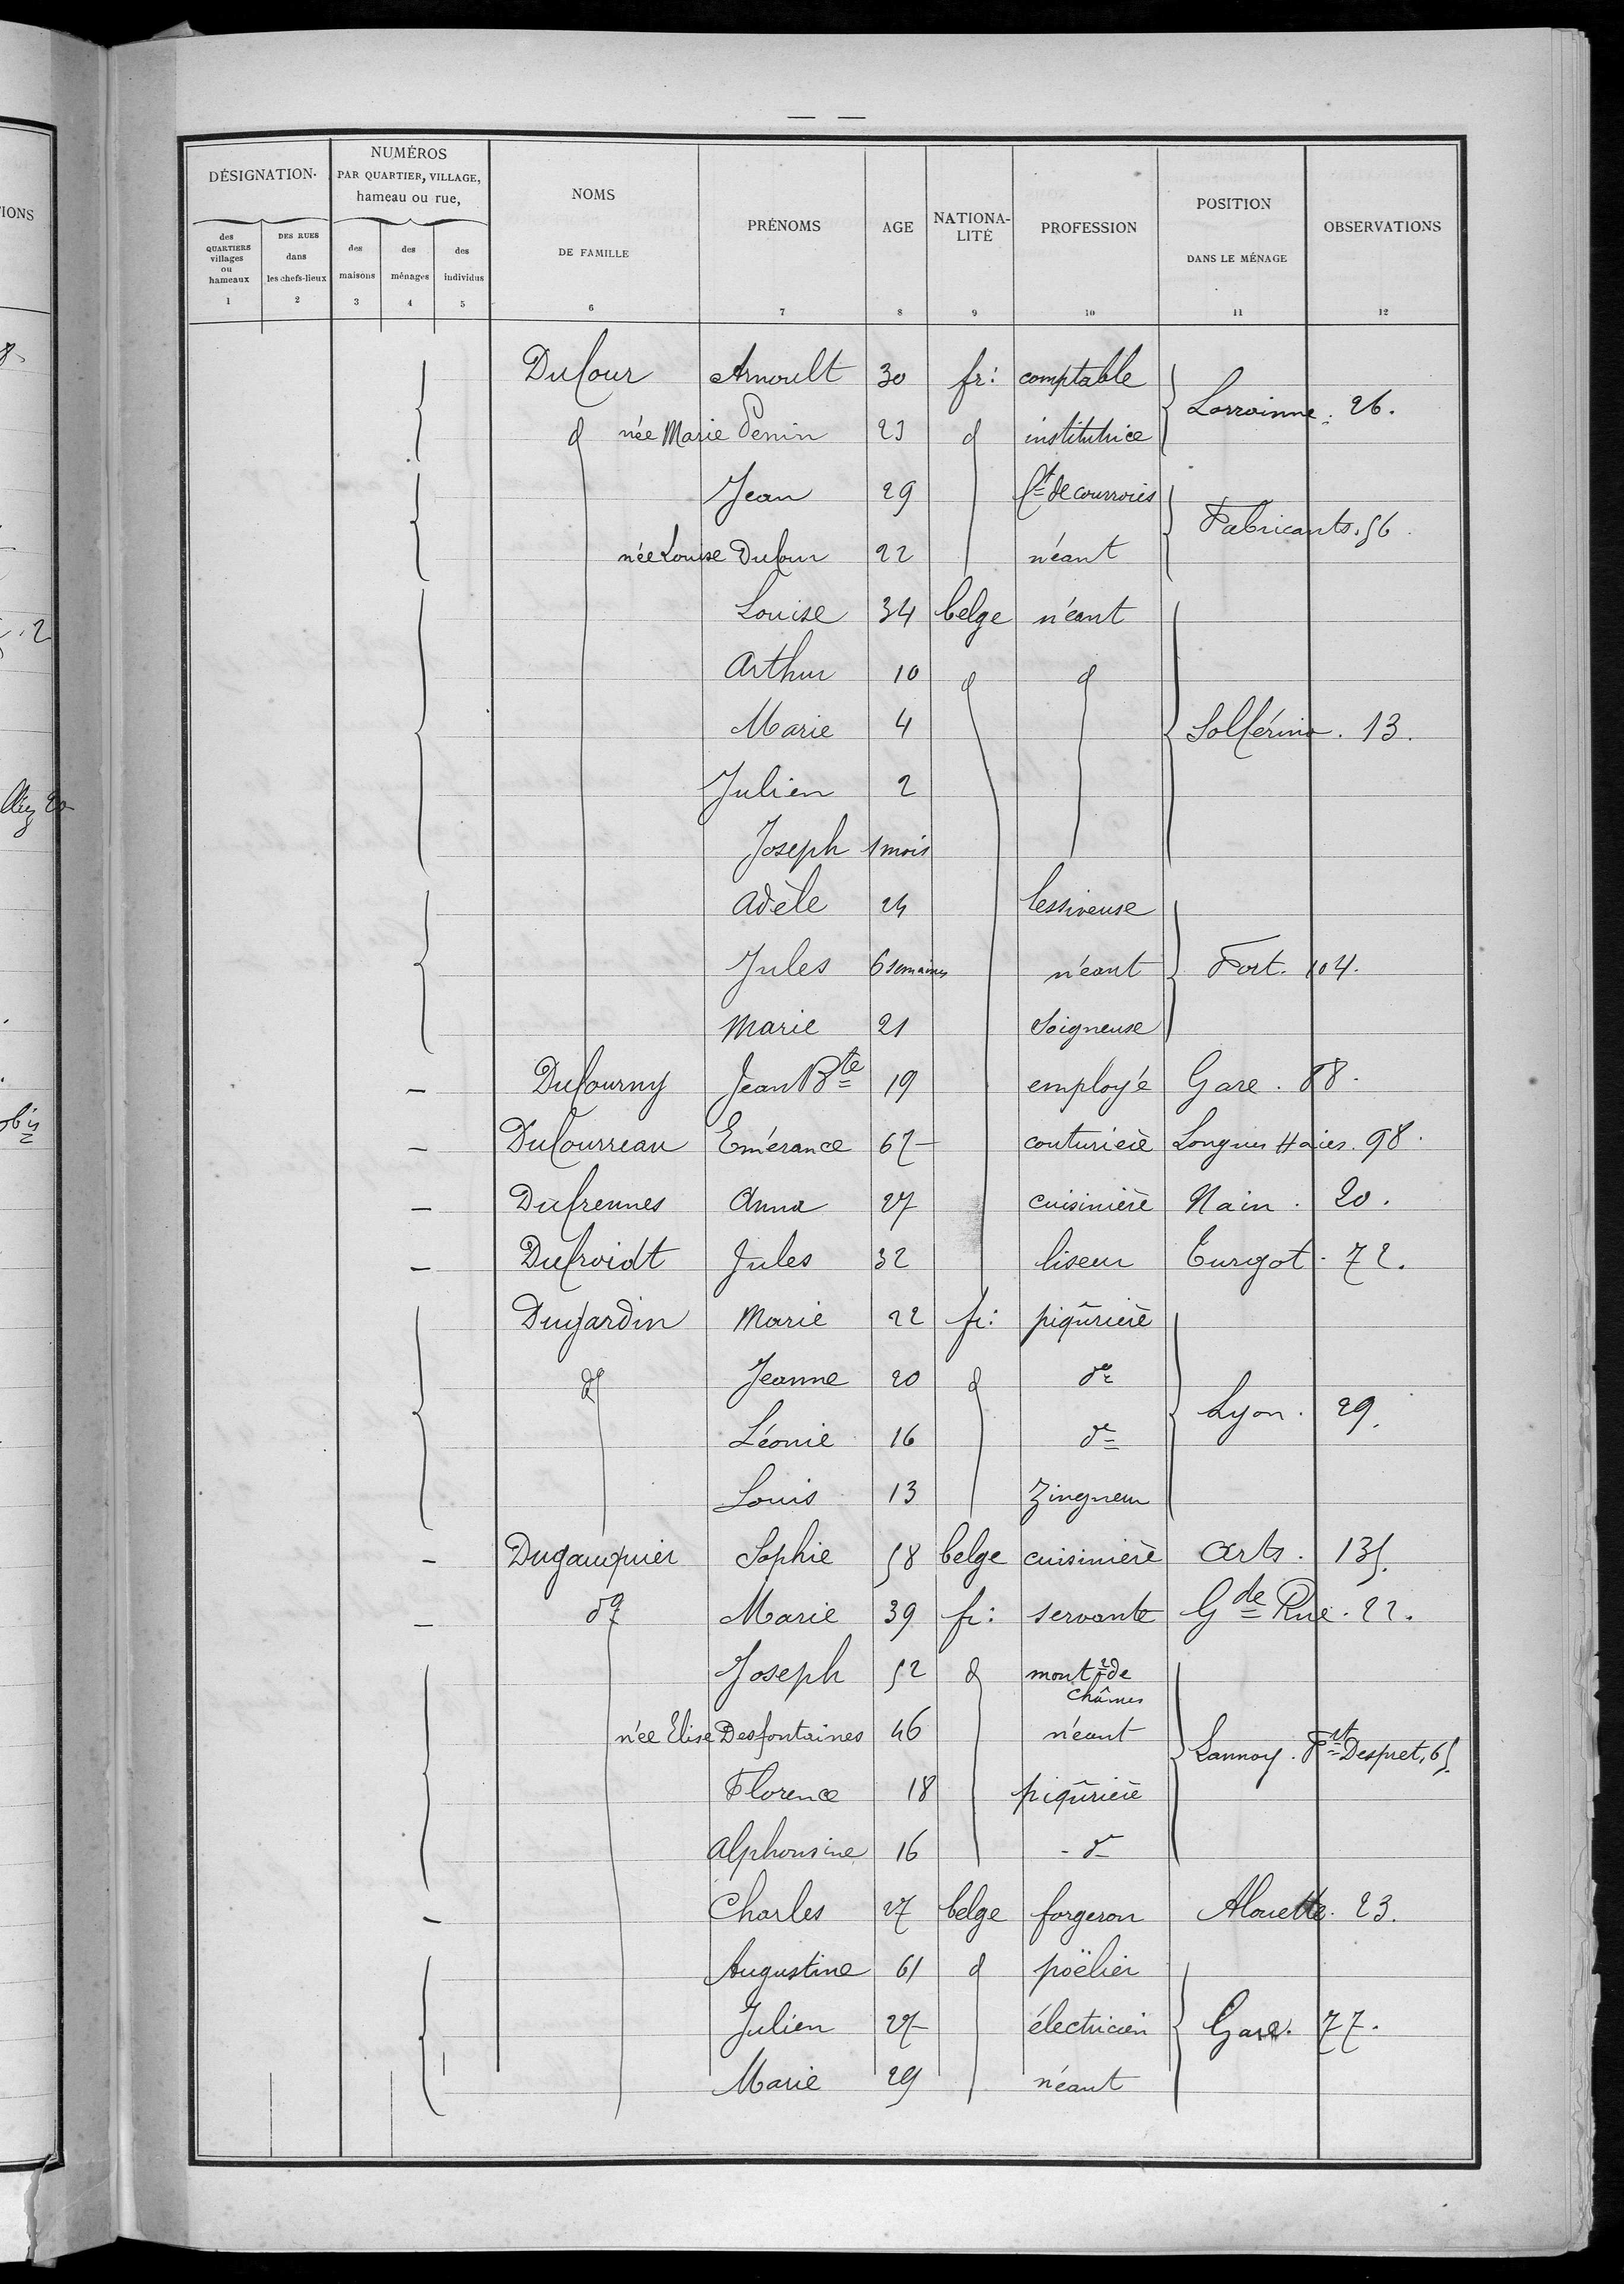 DÉSIGNATION.
NUMÉROS
PAR QUARTIER, VILLAGE,
hameau ou rue,
des QUARTIERS villages ou hameaux
DES RUES dans les chefs-lieux
des maisons
des ménages
des individus
NOMS DE FAMILLE
PRÉNOMS
AGE
NATIONA-LITÉ
PROFESSION
POSITION DANS LE MÉNAGE
OBSERVATIONS
1 2 3 4 5 6 7 8 9 10 11 12
Dufour Arnoult 30 fr: comptable
Lorrainne. 26.
d née Marie Penin 23 d institutrice
Jean 29 ft de courroies
Fabricants. 56.
née Louise Dufour 22 néant
Louise 34 belge néant
Arthur 10 d d
Marie 4 Solférino. 13.
Julien 2
Joseph 1 mois
Adèle 24 lessiveuse
Jules 6 semaines néant Fort. 104.
Marie 21 soigneuse
— Dufourny Jean Bte 19 employé Gare. 88.
— Dufourreau Emérance 67 couturière Longues Haies. 98.
— Dufrennes Anna 27 cuisinière Nain. 20.
— Dufroidt Jules 32 liseur Turgot. 72.
Dujardin Marie 22 fr: piqûrière
do Jeanne 20 d do
Lyon. 29.
Léonie 16 do
Louis 13 Zingueur
— Dugauquier Sophie 58 belge cuisinière Arts. 135.
— do Marie 39 fr: servante Gde Rue. 22.
Joseph 52 d montr de
chaînes
née Elise Desfontaines 46 néant
Lannoy. Ft Despret, 65.
Florence 18 piqûrière
Alphonsine 16 - d
— Charles 27 belge forgeron Alouette. 23.
Augustine 61 d poëlier
Julien 27 électricien Gare. 77.
Marie 29 néant